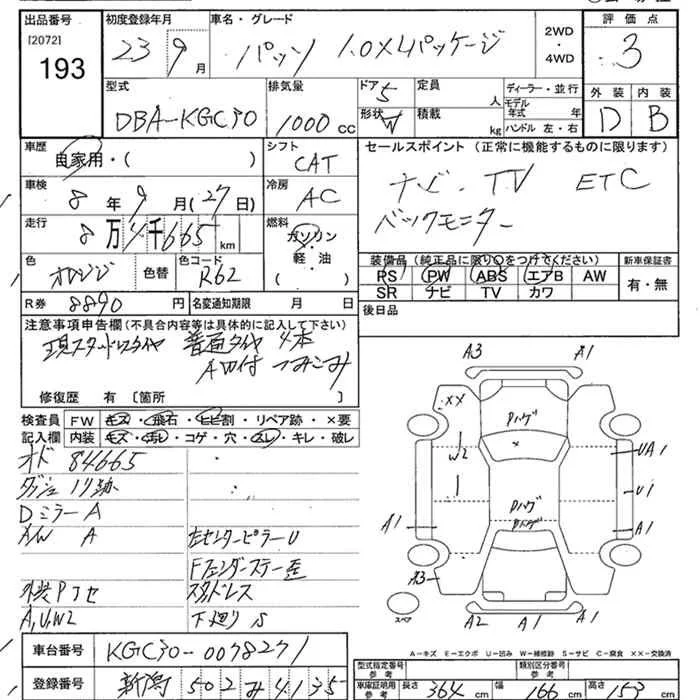 出品番号
[2072]
193
初度登録年月
23 9 月
車名・グレード
パッソ 1.0X 4パッケージ
2WD
・
4WD
評価点
3
型式
DBA-KGC30
排気量
1000 CC
ドア 5
形状 W
定員 人
積載 kg
ディーラー・並行
モデル年式 年
ハンドル 左・右
外装 内装
D B
車歴
自家用・( )
シフト
CAT
セールスポイント (正常に機能するものに限ります)
ナビ・TV ETC
バックモニター
車検
8 年 9 月(27日)
冷房
AC
走行
8万4千665 km
燃料
ガソリン
・
軽油
( )
色
オレンジ
色替
色コード
R62
装備品(純正品に限り○をつけてください)
新車保証書
RS PW ABS エアB AW
SR ナビ TV カワ
有・無
R券 8890 円 名変通知期限 月 日
後日品
注意事項申告欄(不具合内容等は具体的に記入して下さい)
現スタッドレスタイヤ 普通タイヤ 4本
AW付 つみこみ
修復歴 有〔箇所 〕
検査員
記入欄
FW キズ・飛石・ヒビ割・リペア跡・×要
内装 キズ・汚れ・コゲ・穴・スレ・キレ・破レ
オド 84665
ダッシュ ノリ跡
Dミラー A
A/W A
左センターピラーU
Fフェンダーステー歪
外装PTセ
スタッドレス
A,U,W2
下廻りS
A3 A1
XX
Pハゲ
×
W2
UA1
U1
Pハゲ
Pハゲ
A1 A1
A3
スペア
A2 A1
A-キズ E-エクボ U-凹み W-補修跡 S-サビ C-腐食 XX-交換済
車台番号 KGC30-0078271
登録番号 新潟 502 み 4135
型式指定番号
参考
類別区分番号
参考
車庫証明用
参考
長さ 364 cm 幅 166 cm 高さ 153 cm